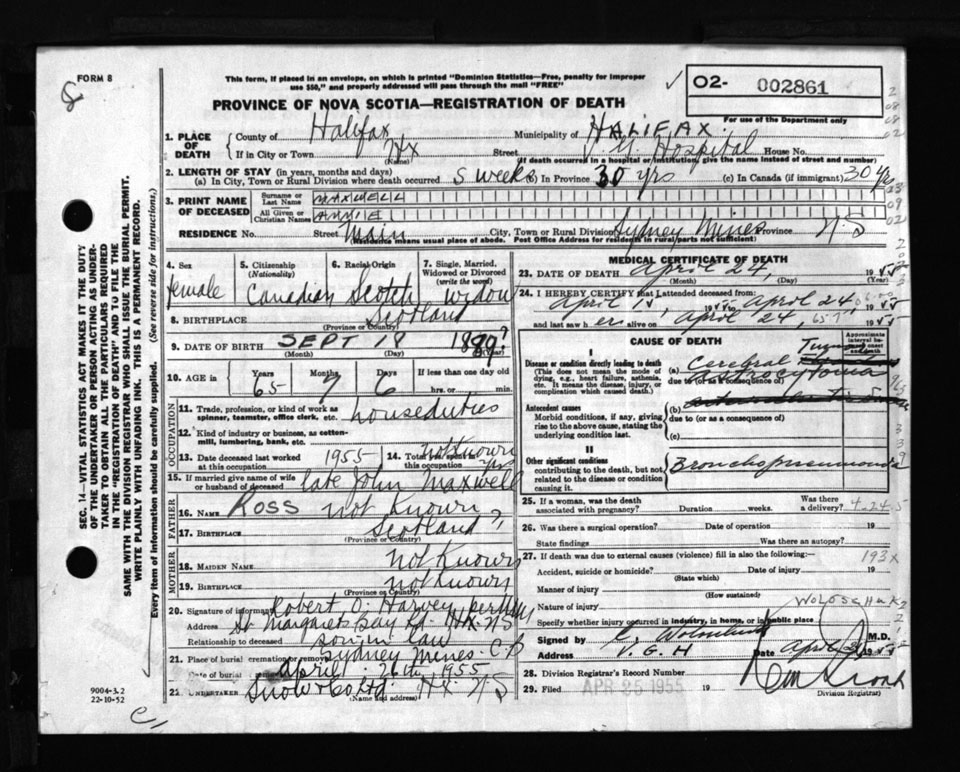 FORM 8
This form, if placed in an envelope, on which is printed "Dominion Statistics—Free, penalty for improper
use $50," and properly addressed will pass through the mail "FREE"
PROVINCE OF NOVA SCOTIA—REGISTRATION OF DEATH
O2- 002861
For use of the Department only
1. PLACE OF DEATH
County of Halifax Municipality of HALIFAX.
If in City or Town Hx (Name) Street V. G. Hospital House No.
(If death occurred in a hospital or institution, give the name instead of street and number)
2. LENGTH OF STAY (in years, months and days)
(a) In City, Town or Rural Division where death occurred 5 weeks (b) In Province 30 yrs (c) In Canada (if immigrant) 30 yrs
3. PRINT NAME OF DECEASED
Surname or Last Name MAXWELL
All Given or Christian Names ANNIE
RESIDENCE No. Street Main City, Town or Rural Division Sydney Mines Province N.S
(Residence means usual place of abode. Post Office Address for residents in rural parts not sufficient)
4. Sex female
5. Citizenship (Nationality) Canadian
6. Racial Origin Scotch
7. Single, Married, Widowed or Divorced (write the word) widow
8. BIRTHPLACE Scotland
(Province or Country)
9. DATE OF BIRTH SEPT 18
(Month) (Day) (Year)
10. AGE in Years 65 Months 7 Days 6 If less than one day old hrs. or min.
OCCUPATION
11. Trade, profession, or kind of work as spinner, teamster, office clerk, etc. houseduties
12. Kind of industry or business, as cotton-mill, lumbering, bank, etc.
13. Date deceased last worked at this occupation 1955
14. Total this occupation not Known yrs
15. If married give name of wife or husband of deceased late John Maxwell
FATHER
16. NAME Ross not Known
17. BIRTHPLACE Scotland ?
(Province or Country)
MOTHER
18. MAIDEN NAME not Known
19. BIRTHPLACE not Known
(Province or Country)
20. Signature of informant Robert O. Harvey per
Address St Margarets Bay Rd. Hx. NS
Relationship to deceased son in law
21. Place of burial cremation or removal Sydney Mines. C.B
Date of burial april 26th 1955
22. UNDERTAKER Snow & Co Ltd. Hx. N.S
(Name and address)
MEDICAL CERTIFICATE OF DEATH
23. DATE OF DEATH April 24, 1955
(Month) (Day) (Year)
24. I HEREBY CERTIFY that I attended deceased from:
April 1955 to April 24 1955
and last saw her alive on April 24, 1955
CAUSE OF DEATH
Approximate interval between onset and death
I
Disease or condition directly leading to death (This does not mean the mode of dying, e.g., heart failure, asthenia, etc. It means the disease, injury, or complication which caused death.)
(a) Cerebral Tumor
due to (or as a consequence of)
Astrocytoma
Antecedent causes
Morbid conditions, if any, giving rise to the above cause, stating the underlying condition last.
(b)
due to (or as a consequence of)
(c)
II
Other significant conditions contributing to the death, but not related to the disease or condition causing it.
Bronchopneumonia
25. If a woman, was the death associated with pregnancy? Duration weeks. Was there a delivery?
26. Was there a surgical operation? Date of operation 19
State findings Was there an autopsy?
27. If death was due to external causes (violence) fill in also the following:— 193X
Accident, suicide or homicide? Date of injury 19
(State which)
Manner of injury
(How sustained)
Nature of injury
Specify whether injury occurred in industry, in home, or in public place
Signed by M.D.
Address V.G.H Date April 1955
28. Division Registrar's Record Number
29. Filed APR 25 1955 19
Division Registrar)
SEC. 14—VITAL STATISTICS ACT MAKES IT THE DUTY
OF THE UNDERTAKER OR PERSON ACTING AS UNDER-
TAKER TO OBTAIN ALL THE PARTICULARS REQUIRED
IN THE "REGISTRATION OF DEATH" AND TO FILE THE
SAME WITH THE DIVISION REGISTRAR WHO SHALL ISSUE THE BURIAL PERMIT.
WRITE PLAINLY WITH UNFADING INK. THIS IS A PERMANENT RECORD.
Every item of information should be carefully supplied. (See reverse side for instructions.)
9004-3.2
22-10-52